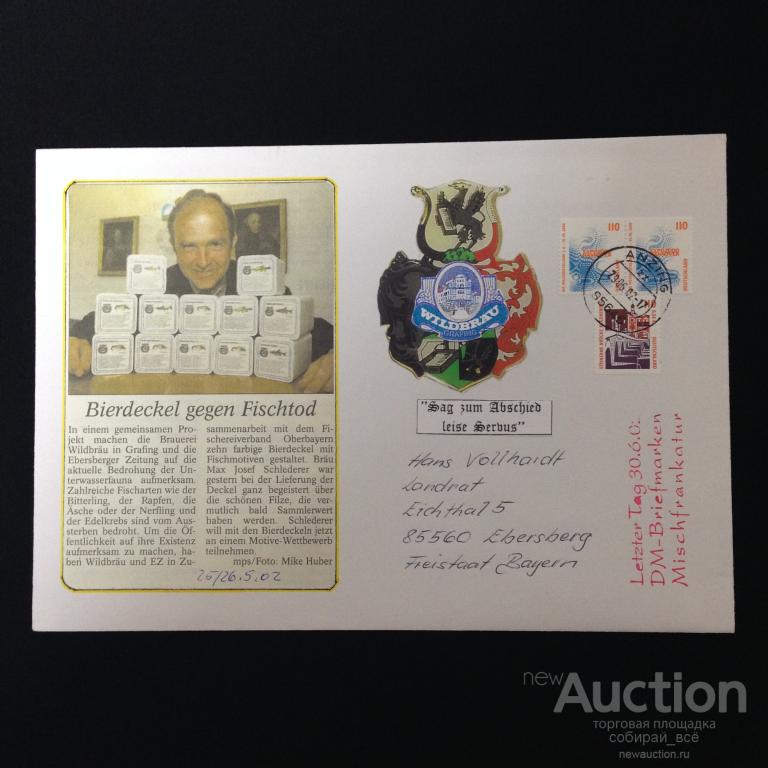 Bierdeckel gegen Fischtod
In einem gemeinsamen Pro-
jekt machen die Brauerei
Wildbräu in Grafing und die
Ebersberger Zeitung auf die
aktuelle Bedrohung der Un-
terwasserfauna aufmerksam.
Zahlreiche Fischarten wie der
Bitterling, der Rapfen, die
Äsche oder der Nerfling und
der Edelkrebs sind vom Aus-
sterben bedroht. Um die Öf-
fentlichkeit auf ihre Existenz
aufmerksam zu machen, ha-
ben Wildbräu und EZ in Zu-
sammenarbeit mit dem Fi-
schereiverband Oberbayern
zehn farbige Bierdeckel mit
Fischmotiven gestaltet. Bräu
Max Josef Schlederer war
gestern bei der Lieferung der
Deckel ganz begeistert über
die schönen Filze, die ver-
mutlich bald Sammlerwert
haben werden. Schlederer
will mit den Bierdeckeln jetzt
an einem Motive-Wettbewerb
teilnehmen.
mps/Foto: Mike Huber
25/26.5.02
WILDBRÄU
GRAFING
"Sag zum Abschied
leise Servus"
Hans Vollhardt
Landrat
Eichthal 5
85560 Ebersberg
Freistaat Bayern
110
110
ANZING
Letzter Tag 30.6.02
DM-Briefmarken
Mischfrankatur
newAuction
торговая площадка
собирай_всё
newauction.ru